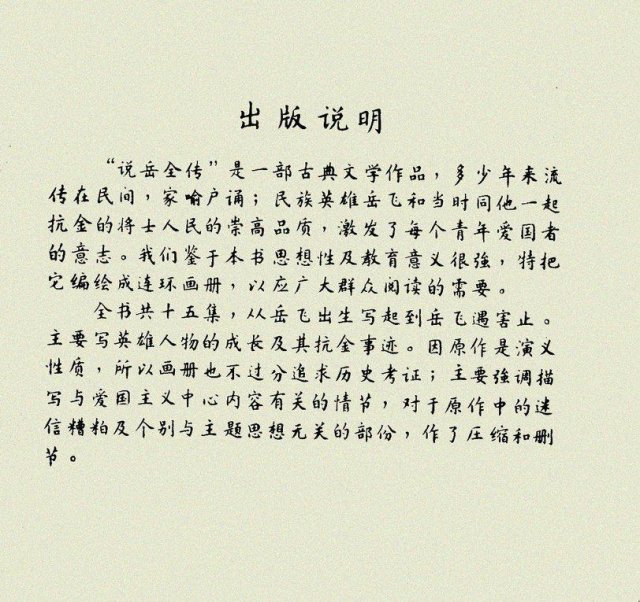 出版说明
“说岳全传”是一部古典文学作品，多少年来流
传在民间，家喻户诵；民族英雄岳飞和当时同他一起
抗金的将士人民的崇高品质，激发了每个青年爱国者
的意志。我们鉴于本书思想性及教育意义很強，特把
它编绘成连环画册，以应广大群众阅读的需要。
全书共十五集，从岳飞出生写起到岳飞遇害止。
主要写英雄人物的成长及其抗金事迹。因原作是演义
性质，所以画册也不过分追求历史考证；主要強调描
写与爱国主义中心内容有关的情节，对于原作中的迷
信糟粕及个别与主题思想无关的部份，作了压缩和删
节。